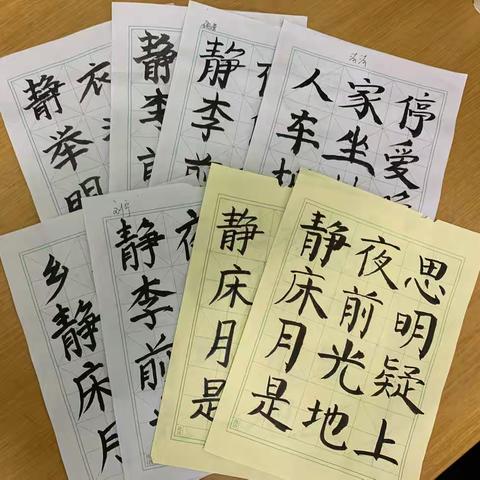 静
举
明
静
李
静
李
前
人家停
车坐爱
乡
静
床
月
静
李
前
静
床
月
是
静夜思
床前明
月光疑
是地上